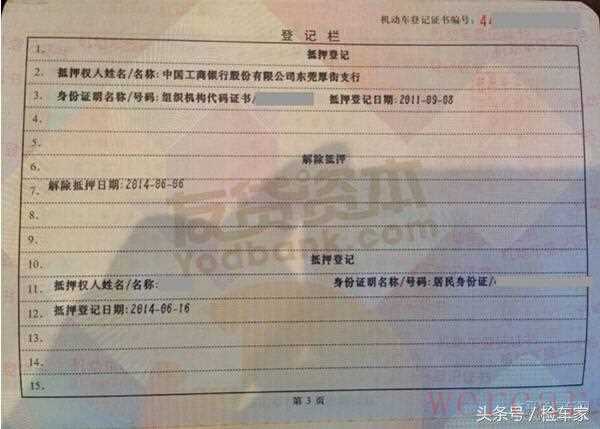 机动车登记证书编号: 44
登记栏
1. 抵押登记
2. 抵押权人姓名/名称:中国工商银行股份有限公司东莞厚街支行
3. 身份证明名称/号码:组织机构代码证书/ 抵押登记日期:2011-09-08
4.
5.
6. 解除抵押
7. 解除抵押日期:2014-06-06
8.
9.
10. 抵押登记
11. 抵押权人姓名/名称: 身份证明名称/号码:居民身份证/
12. 抵押登记日期:2014-06-16
13.
14.
15.
友贷资本
Yodbank.com
第 3 页
头条号/检车家